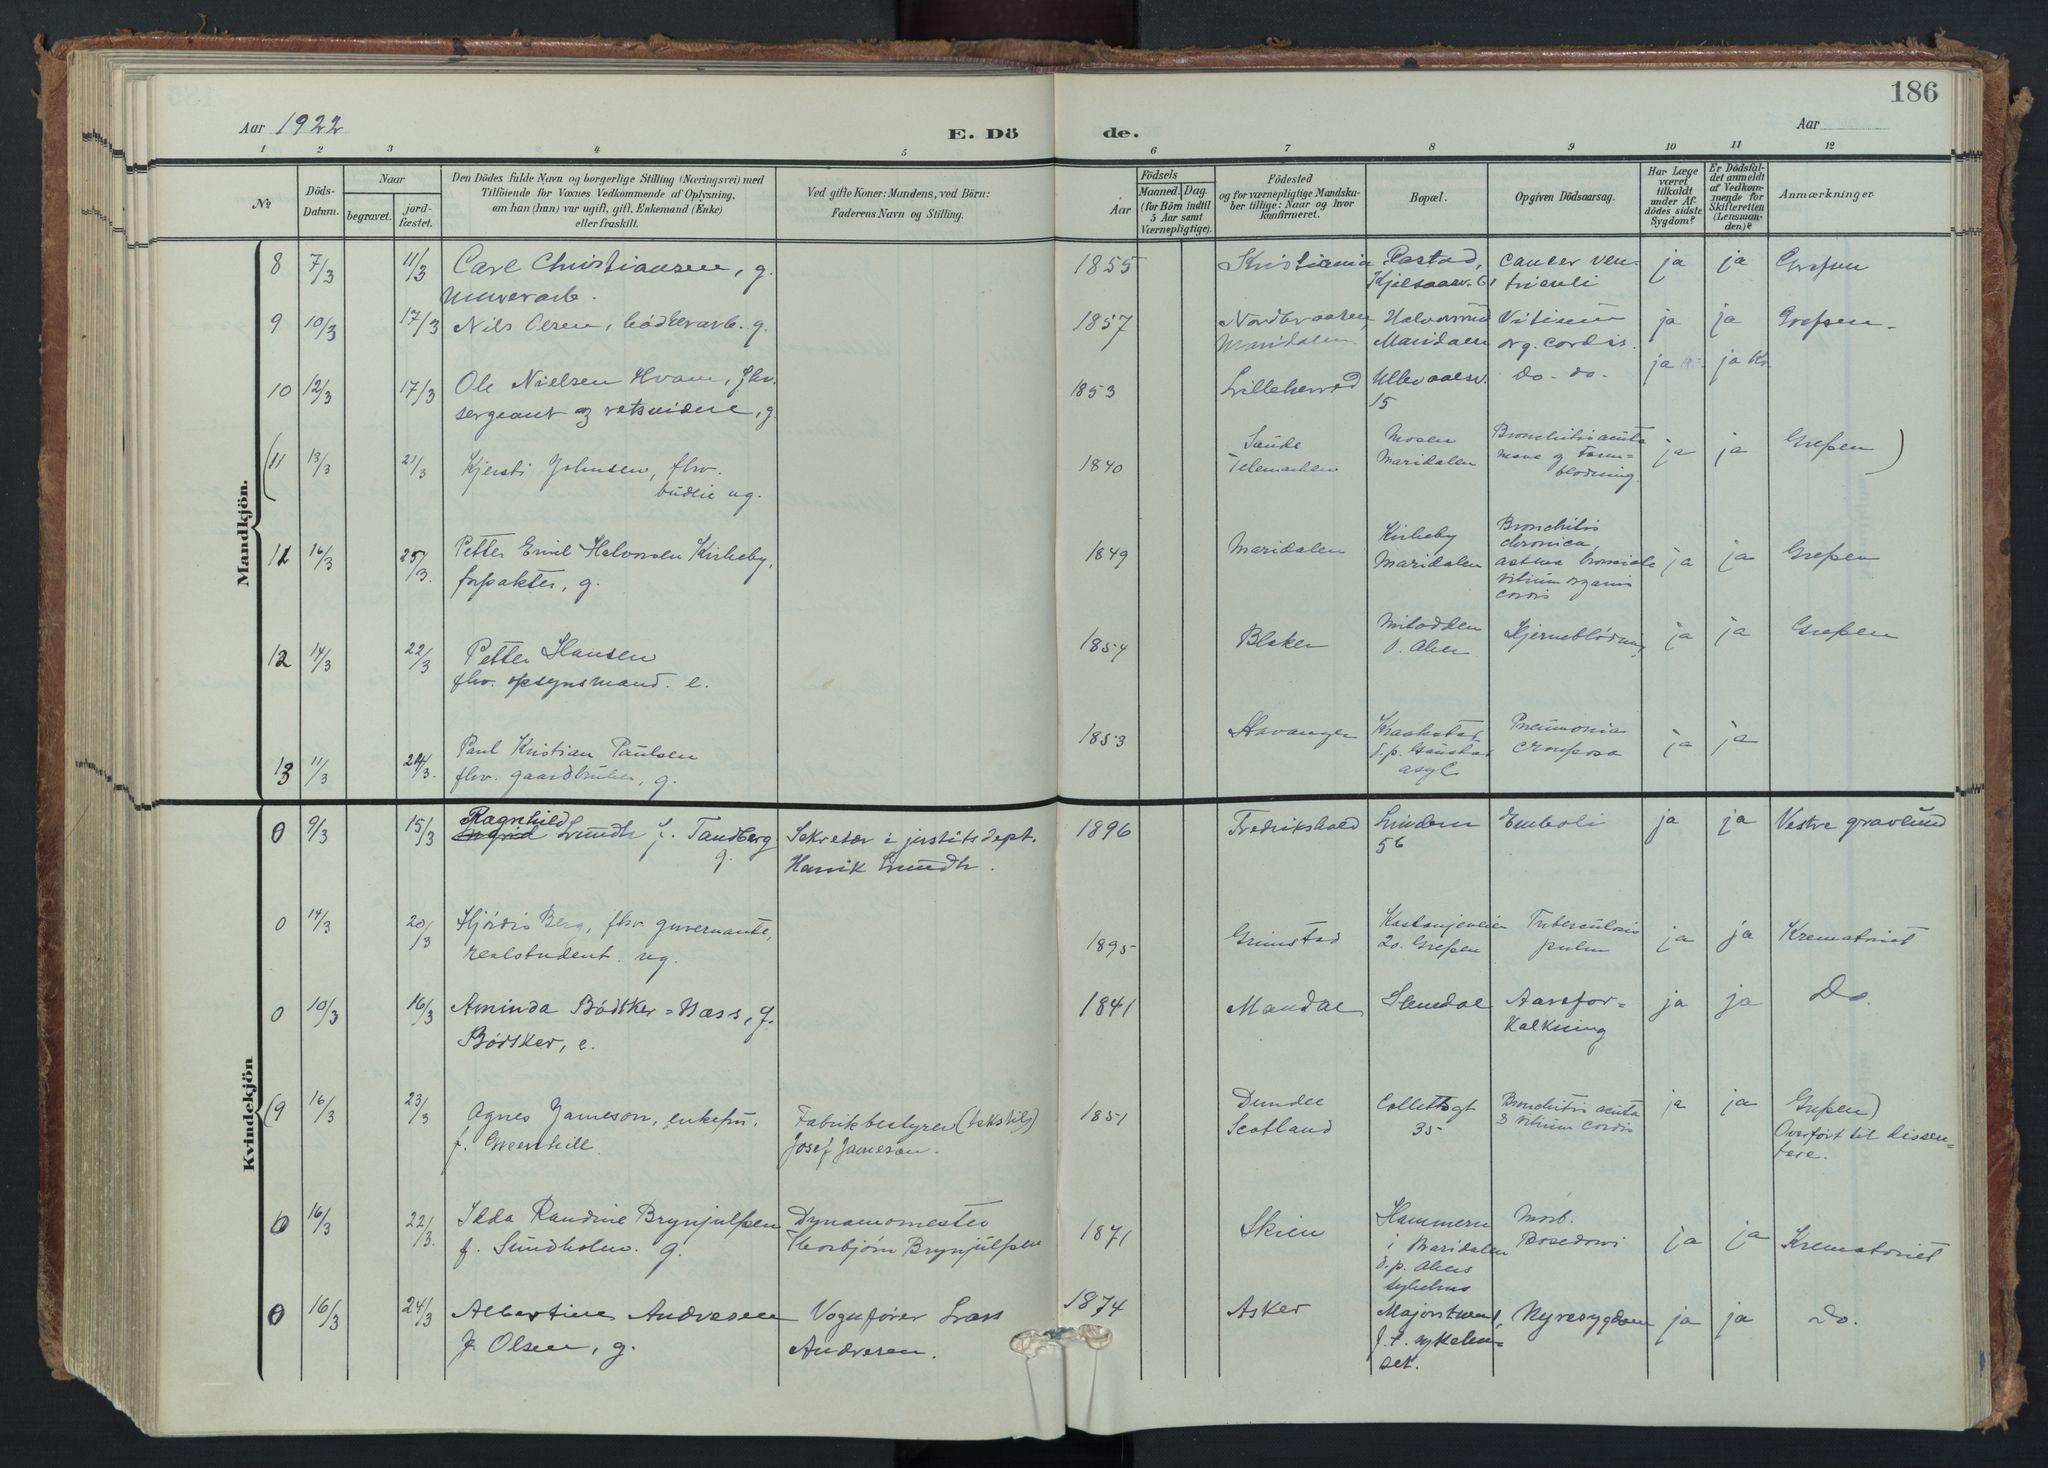 186
Aar 1922
E. Dö de.
Aar
1 2 3 4 5 6 7 8 9 10 11 12
No
Döds-Datum.
Naar
begravet.
jord-fæstet.
Den Dödes fulde Navn og borgerlige Stilling (Næringsvei) med
Tilföiende for Voxnes Vedkommende af Oplysning,
om han (hun) var ugift, gift, Enkemand (Enke)
eller fraskilt.
Ved gifte Koner: Mandens, ved Börn:
Faderens Navn og Stilling.
Födsels
Aar
Maaned. Dag.
(for Börn indtil
5 Aar samt
Værnepligtige).
Födested
og for værnepligtige Mandska-
ber tillige: Naar og hvor
konfirmeret.
Bopæl.
Opgiven Dödsaarsag.
Har Læge
været
tilkaldt
under Af-
dödes sidste
Sygdom?
Er Dödsfal-
det anmeldt
af Vedkom-
mende for
Skifteretten
(Lensman-
den)?
Anmærkninger.
Mandkjön.
8 7/3 11/3 Carl Christiansen, g. 1855 Kristiania Kjelsaasv. 61 cancer ven- ja ja Grefsen
murerarb. triculi
9 10/3 17/3 Nils Olsen, bödkerarb. g. 1857 Nordbraaten, Halvorsrud Vitium ja ja Grefsen
Maridalen Maridalen org. cordis.
10 12/3 17/3 Ole Nielsen Hvam, fhv. 1853 Lilleherred Ullevaalsv. do. do. ja ja
sergeant og retsvidne, g. 15
(11 13/3 21/3 Kjersti Johnsen, fhv. 1840 Saude Mosen Bronchitis acuta ja ja Grefsen)
budeie ug. Telemarken Maridalen Mave og Tarm-
blödning.
11 16/3 25/3. Petter Emil Halvorsen Kirkeby, 1849 Maridalen Kirkeby Bronchitis ja ja Grefsen
forpakter, g. Maridalen chronica,
astma bronciale
vitium organis
cordis
12 14/3 22/3 Petter Hansen 1854 Blaker V. Aker Hjerneblödning ja ja Grefsen
fhv. opsynsmand. e.
13 11/3 24/3. Paul Kristian Paulsen 1853 Stavanger Kraakstad Pneumonia ja ja
fhv. gaardbruker, g. d. p. Gaustad crouposa
asyl
Kvindekjön
0 9/3 15/3 Ragnhild
Ingrid Lundh f. Tandberg Sekretær i justitsdept. 1896 Fredrikshald Lindern Emboli ja ja Vestre gravlund
g. Henrik Lundh. 56
0 14/3 20/3 Hjördis Berg, fhv. guvernante, 1895 Grimstad Kastanjeveien Tuberculosis ja ja Krematoriet
realstudent. ug. 20. Grefsen pulm
0 10/3 16/3 Aminda Bödtker-Næss, f. 1841 Mandal Slemdal Aarefor- ja ja Do.
Bödtker, e. kalkning
(9 16/3 23/3 Agnes Jameson, enkefru. Fabrikbestyrer (tekstil) 1851 Dundee Collettsgt Bronchitis acuta ja ja Grefsen)
f. Greenhill Josef Jameson. Scotland 35 & vitium cordis Overfört til dissen-
tere.
0 16/3 22/3. Ilda Randine Brynjulfsen Dynamomester 1871 Skien Hammeren Morb. ja ja Krematoriet
f. Sundholm. g. Thorbjörn Brynjulfsen i Maridalen Basedowi
d. p. Akers
sykehus
0 16/3 24/3 Albertine Andresen Vognförer Lars 1874 Asker Majorstuen, Nyresygdom ja ja Do.
f. Olsen, g. Andresen.